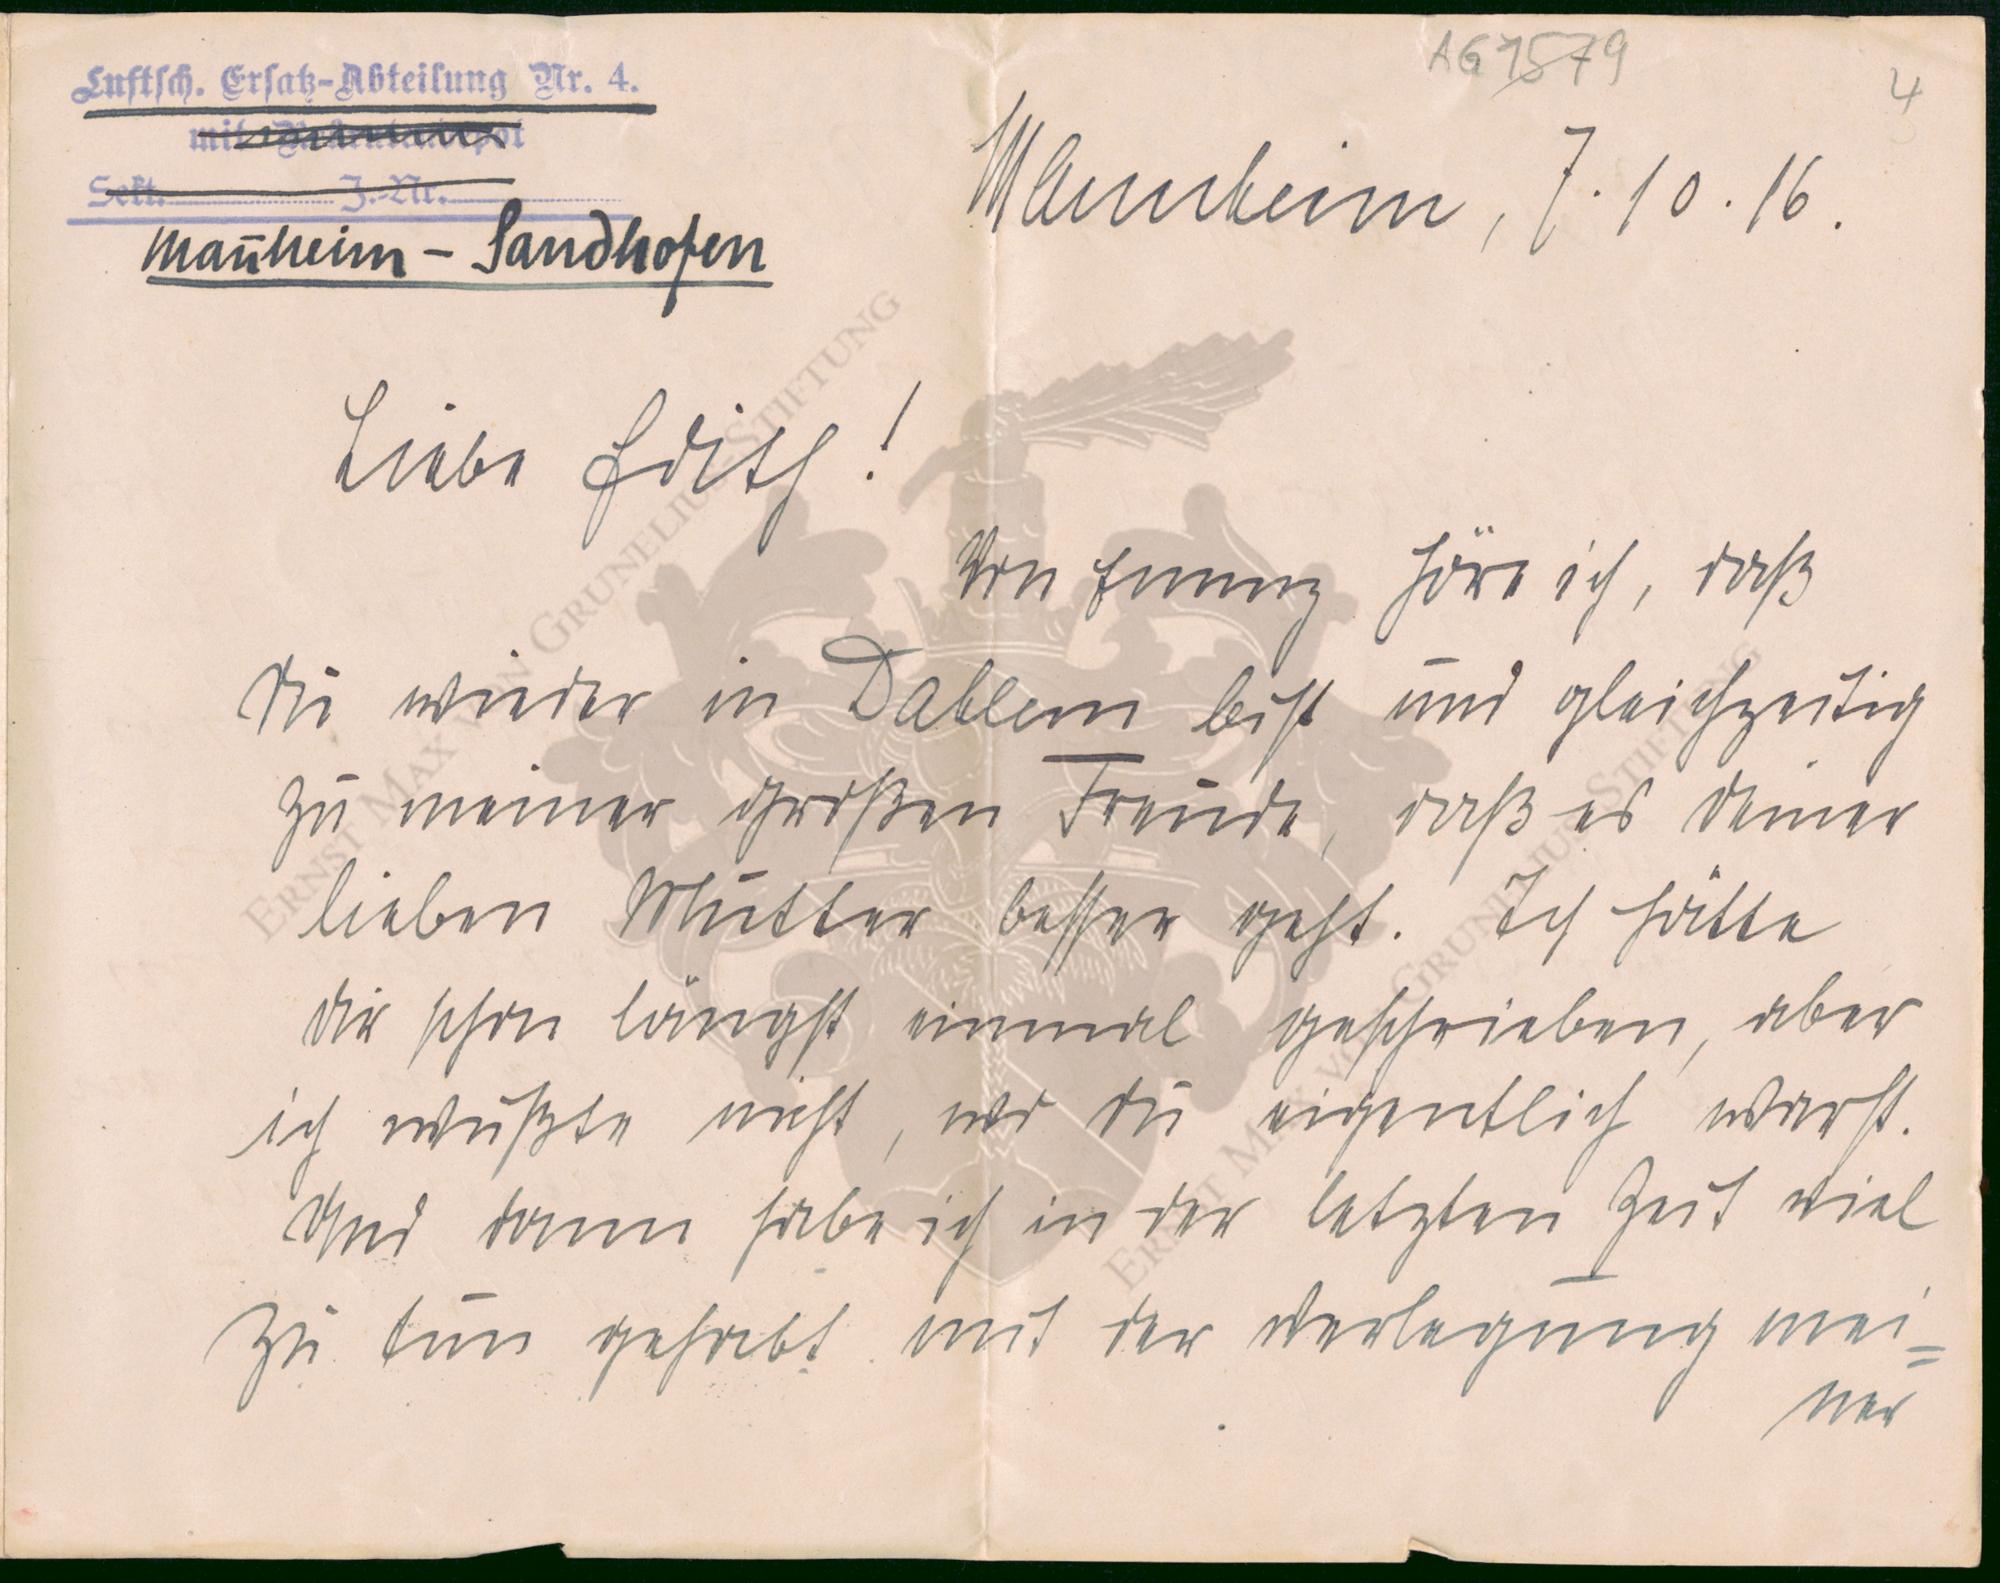 AG 1579
4
Luftsch. Ersatz-Abteilung Nr. 4.
mit
Sekt. J.-Nr.
Mannheim - Sandhofen
Mannheim, 7.10.16.
Liebe Edith!
Von Emmy höre ich, daß
Du wieder in Dahlem bist und gleichzeitig
zu meiner großen Freude, daß es Deiner
lieben Mutter besser geht. Ich hätte
Dir schon längst einmal geschrieben, aber
ich wußte nicht, wo Du eigentlich warst.
Und dann habe ich in der letzten Zeit viel
zu tun gehabt mit der Verlegung mei=
ner
ERNST MAX VON GRUNELIUS-STIFTUNG
ERNST MAX VON GRUNELIUS-STIFTUNG